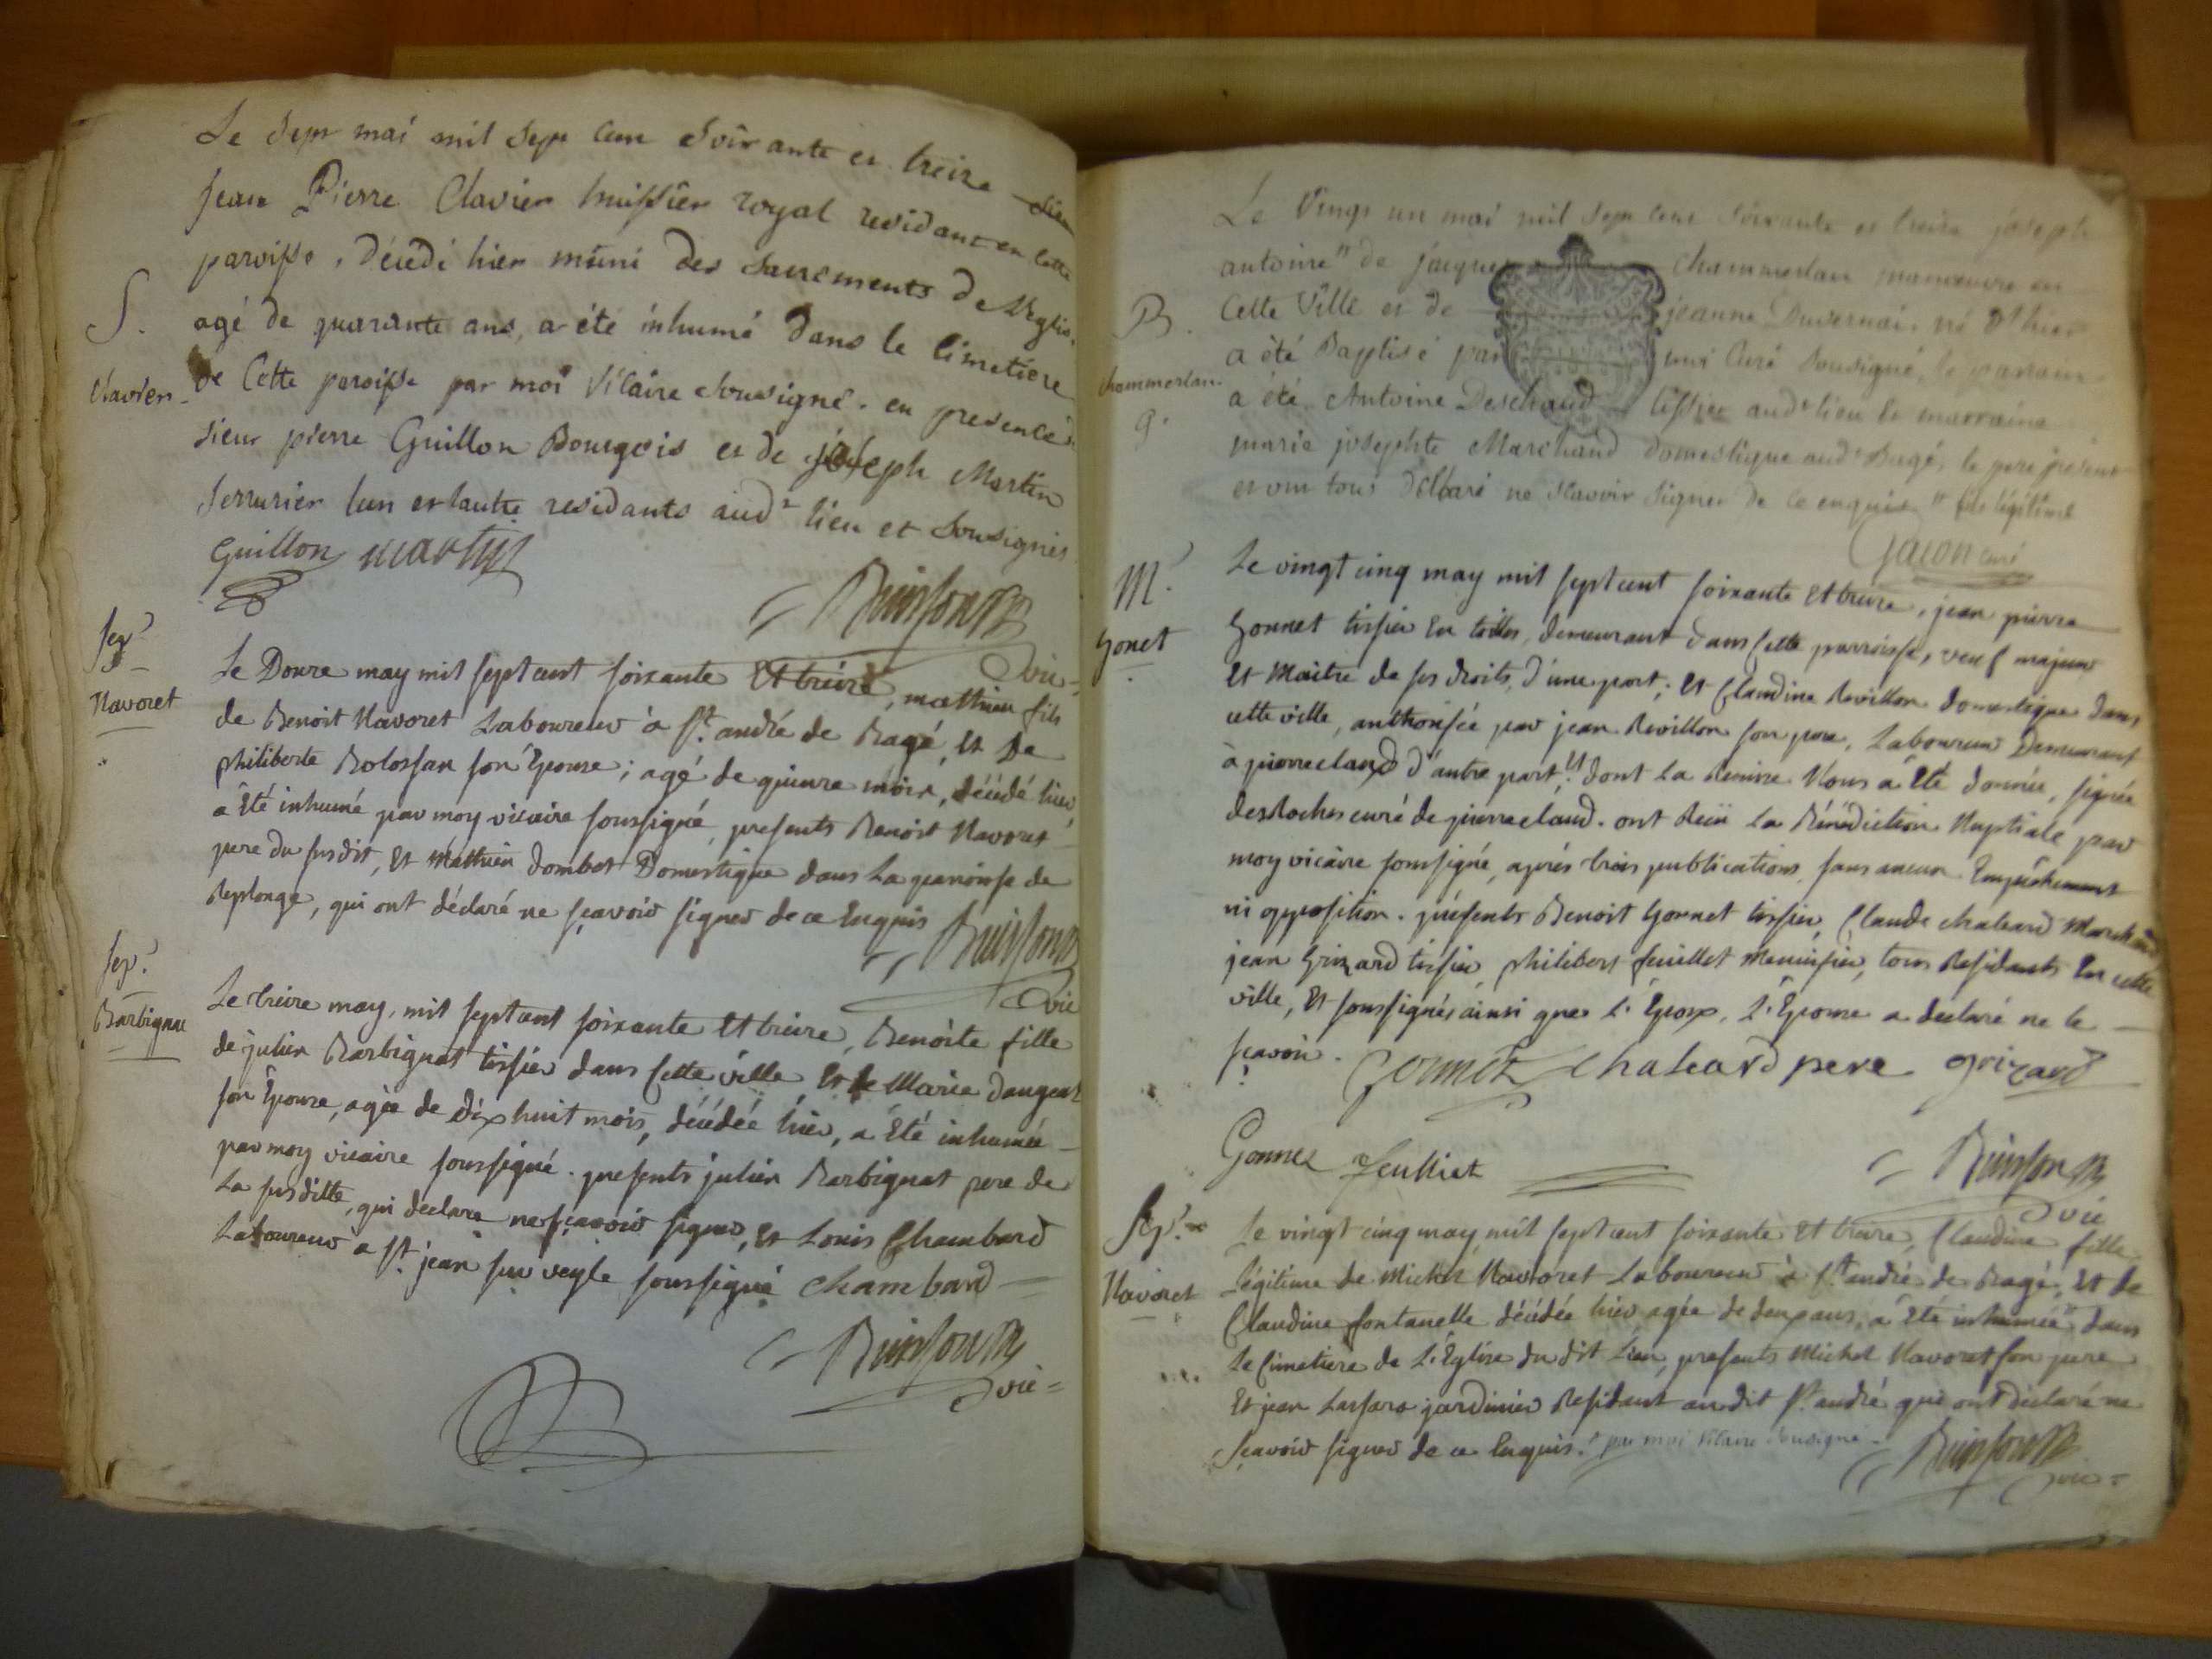 Le Sept mai mil Sept Cent Soixante et treize Sieur
Jean Pierre Clavier huissier royal residant en cette
paroisse, décédé hier muni des Sacrements de l'Eglise
S. agé de quarante ans, a été inhumé dans le Cimetiére
Clavier de Cette paroisse par moi Vicaire Sousigné. en presence
sieur pierre Guillon Bourgeois et de joseph Martin
Serrurier lun et lautre residants audt lieu et Sousignés
Guillon martin
Buisson
vic
Sep.
Navoret
Le Douze may mil sept cent soixante Et treize, mathieu fils
de Benoit Navoret Laboureur à St. andré de Bagé, Et De
philiberte Bolossan son Epouse; agé de quinze mois, décédé hier,
a Eté inhumé par moy vicaire soussigné, presents Benoit Navoret
pere du susdit, Et Mathieu Dombet Domestique dans La paroisse de
Replonge, qui ont déclaré ne sçavoir signer de ce Enquis Buisson
vic
Sep.
Barbignat
Le treize may, mil sept cent soixante Et treize, Benoite fille
de julien Barbignat tissier dans Cette ville, Et de Marie Dangeat
son Epouse, agée de Dix huit mois, décédée hier, a Eté inhumée
par moy vicaire soussigné. presents julien Barbignat pere de
La susditte, qui declare ne sçavoir signer, Et Louis Chambard
Laboureur a St. jean sur veyle soussigné Chambard
Buisson
vic
Le Vingt un mai mil Sept Cent Soixante et treize joseph
antoine # de jacques Chammerlan manoeuvre en
B. Cette Ville et de jeanne Duvernai né d'hier
a été Baptisé par moi Curé Sousigné, le parrain
chammerlan a été Antoine Deschaud tissier audt lieu la marraine
g. marie josephte Marchand Domestique audt Bagé, le pere present
et ont tous déclaré ne scavoir signer de ce enquis # fils légitime
Gacon curé
M.
Gonet
Le vingt cinq may mil sept cent soixante Et treize, jean pierre
Gonnet tissier En toiles, demeurant dans Cette parroisse, veuf majeur
Et Maitre de ses droits, d'une part; Et Claudine Revillon domestique dans
cette ville, authorisée par jean Revillon son pere, Laboureur Demeurant
à pierreclaud d'autre part, dont La Remise Nous a Eté donnée, signée
desRoches curé de pierreclaud. ont Reçu La Bénédiction Nuptiale par
moy vicaire soussigné, aprés trois publications, sans aucun Empêchement
ni opposition. présents Benoit Gonnet tissier, Claude chaleard Marchand
jean Grizard tissier, philibert feuillet Menuisier, tous Residants En cette
ville, Et soussignés ainsi que L'Epoux, L'Epouse a declaré ne le
sçavoir. Gonnet chaleard pere grizard
Gonnet feulliet
Buisson
vic
Sep.
Navoret
Le vingt cinq may mil sept cent soixante Et treize, Claudine fille
Légitime de Michel Navoret Laboureur à St andré de Bagé, Et de
Claudine fontanelle décédée hier agée de deux ans, a Eté inhumée dans
Le Cimetiere de L'Eglise du dit Lieu, presents Michel Navoret son pere
Et jean Lassara jardinier Residant au dit St. andré qui ont déclaré ne
sçavoir signer de ce Enquis. # par moi Vicaire Sousigné. Buisson
vic